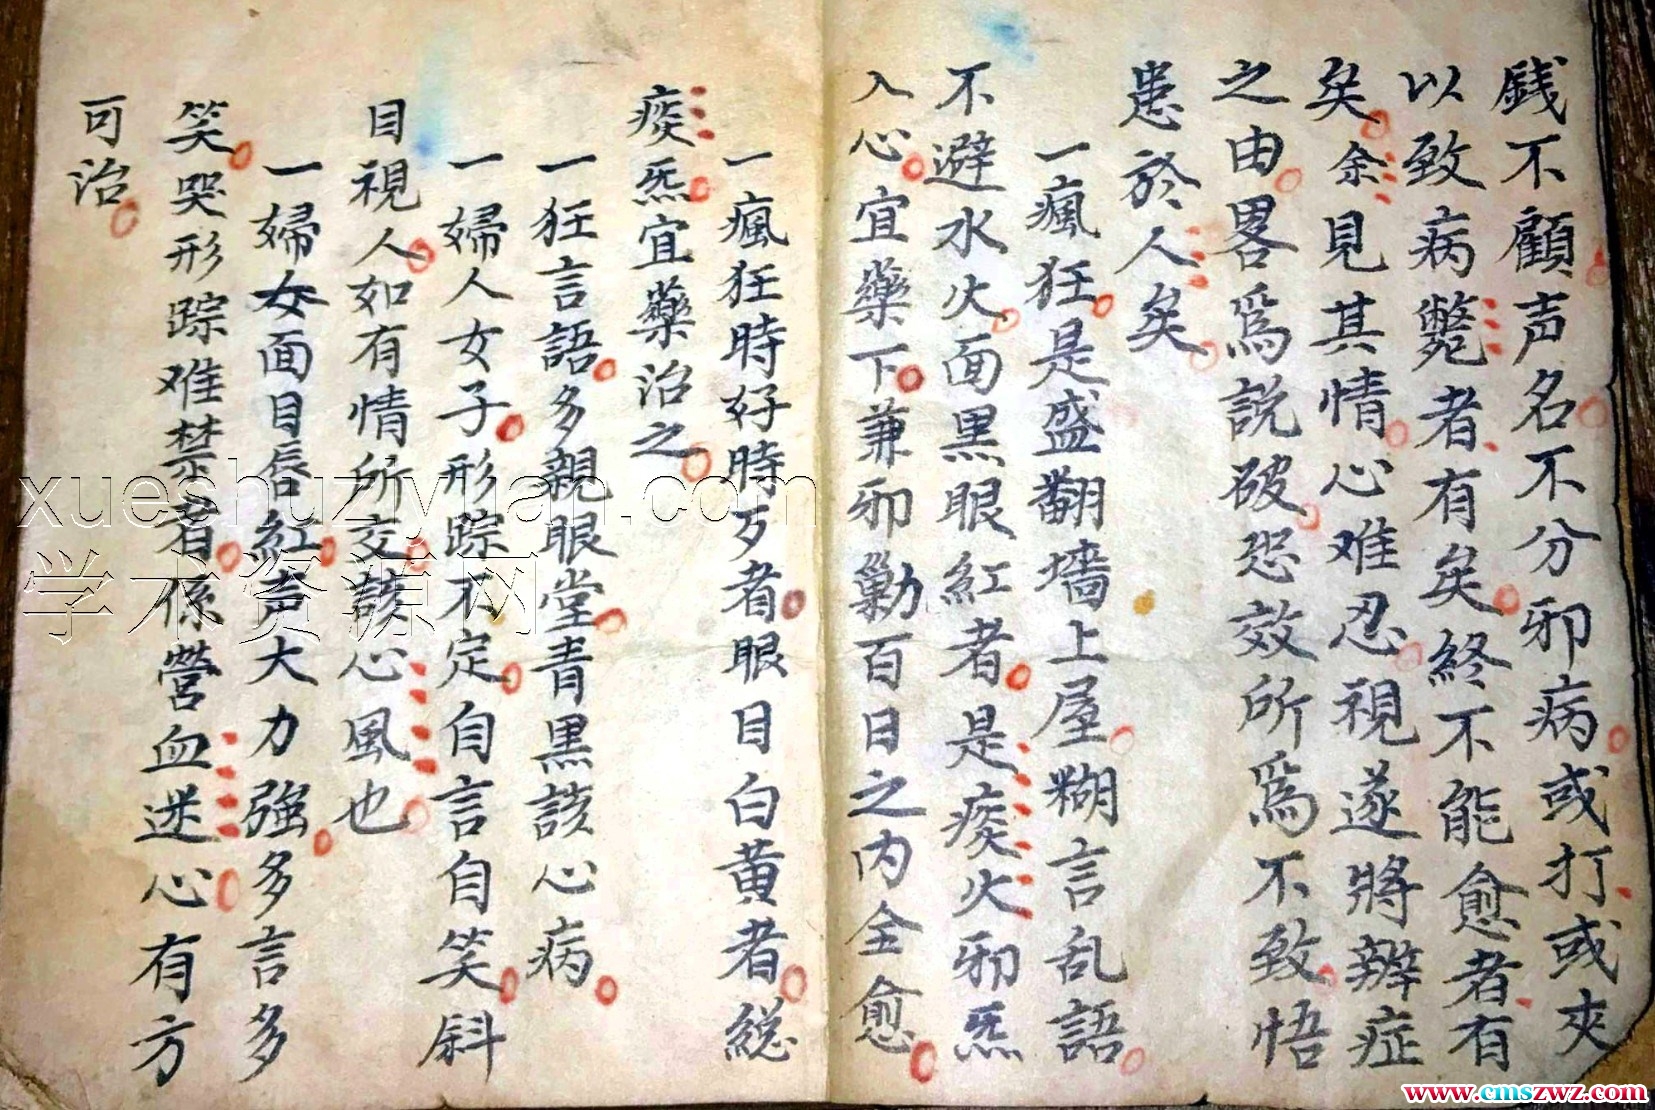 銭不顧声名不分邪病或打或夾
以致病斃者有矣終不能愈者有
矣余見其情心难忍視遂將辨症
之由畧爲說破恐效所爲不致悟
患於人矣
一瘋狂是盛翻墻上屋糊言乱語
不避水火面黑眼紅者是痰火邪炁
入心宜藥下兼邪勦百日之内全愈
一瘋狂時好時歹者眼目白黄者総
痰炁宜藥治之
一狂言語多親眼堂青黑該心病
一婦人女子形踪不定自言自笑斜
目視人如有情所交該心風也
一婦女面目唇紅声大力強多言多
笑哭形踪难禁者係營血迷心有方
可治
xueshuziyuan.com
学术资源网
www.cmszwz.com